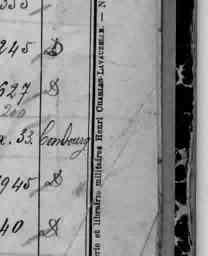 335
245 D
627 D
200
x. 33. Combourg
945 D
40 D
rie et librairie militaires Henri CHARLES-LAVAUZELLE. — N